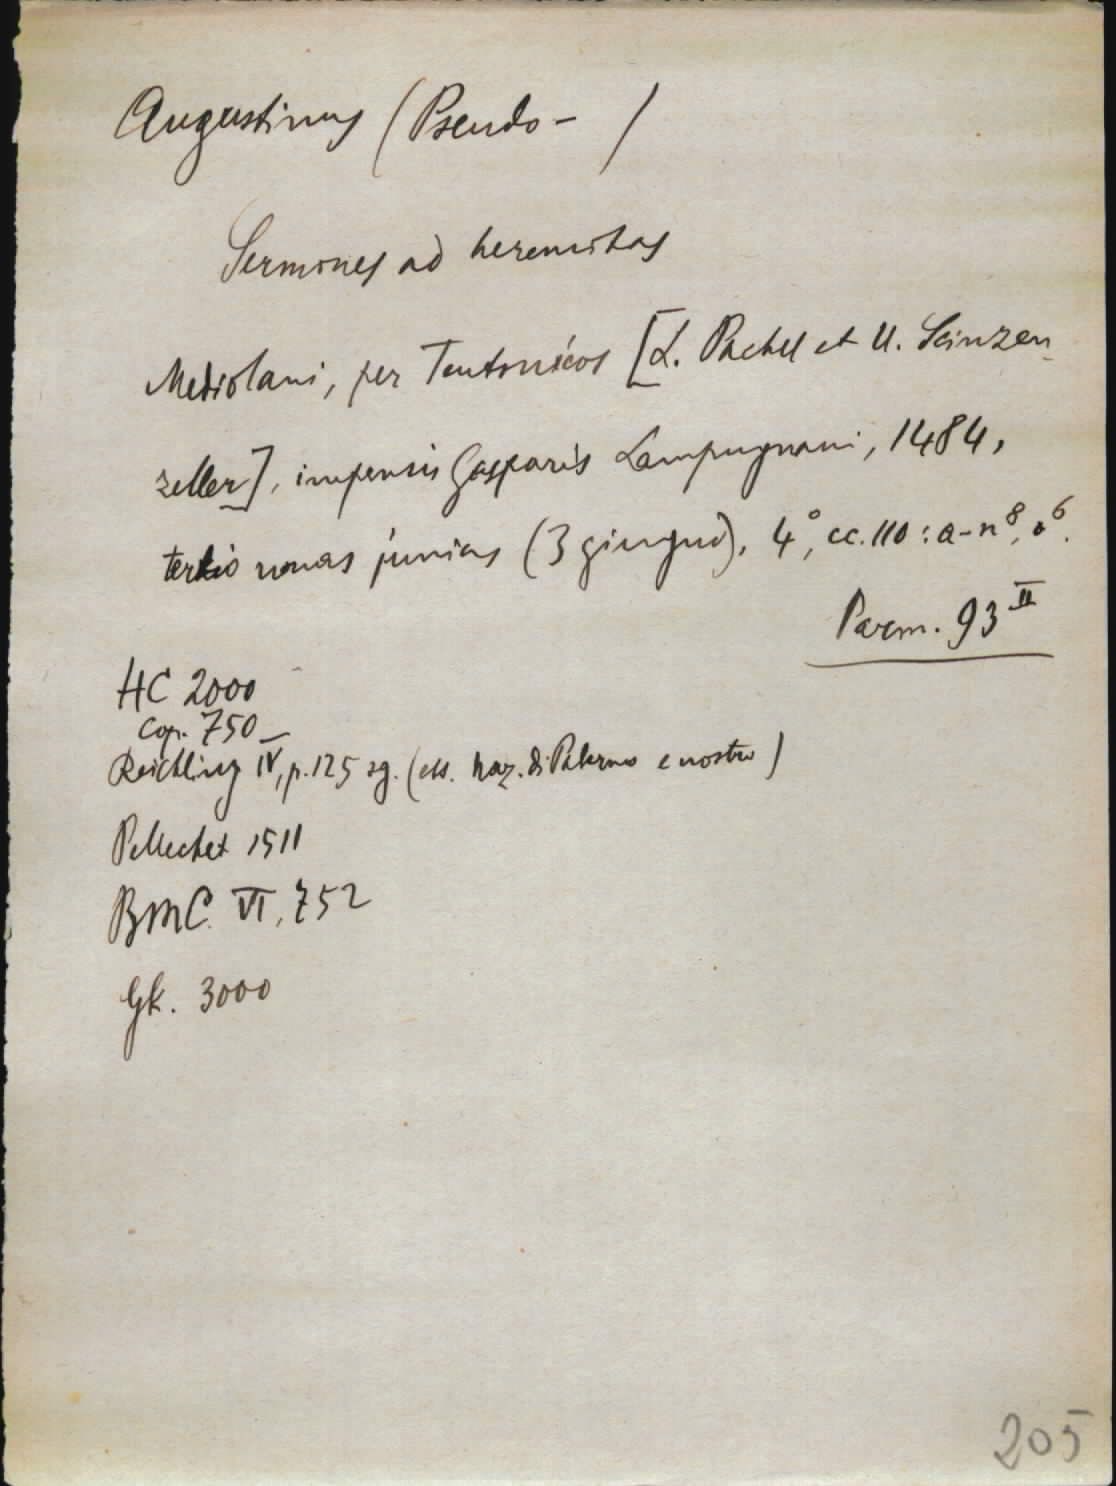 Augustinus (Pseudo- )
Sermones ad heremitas
Mediolani, per Teutonicos [L. Pachel et U. Scinzen-
zeller], impensis Gasparis Lampugnani, 1484,
tertio nonas junias (3 giugno), 4°, cc. 110: a-n⁸, o⁶.
Parm. 93 II
HC 2000
Cop. 750
Reichling IV, p. 125 sg. (ess. Naz. di Palermo e nostro)
Pellechet 1511
BMC. VI, 752
Gk. 3000
205